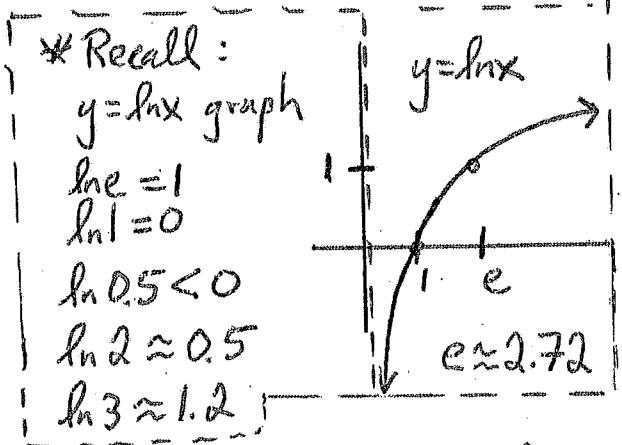 * Recall:
y=lnx graph
lne=1
ln1=0
ln 0.5<0
ln 2≈0.5
ln 3≈1.2
y=lnx
1
1
e
e≈2.72